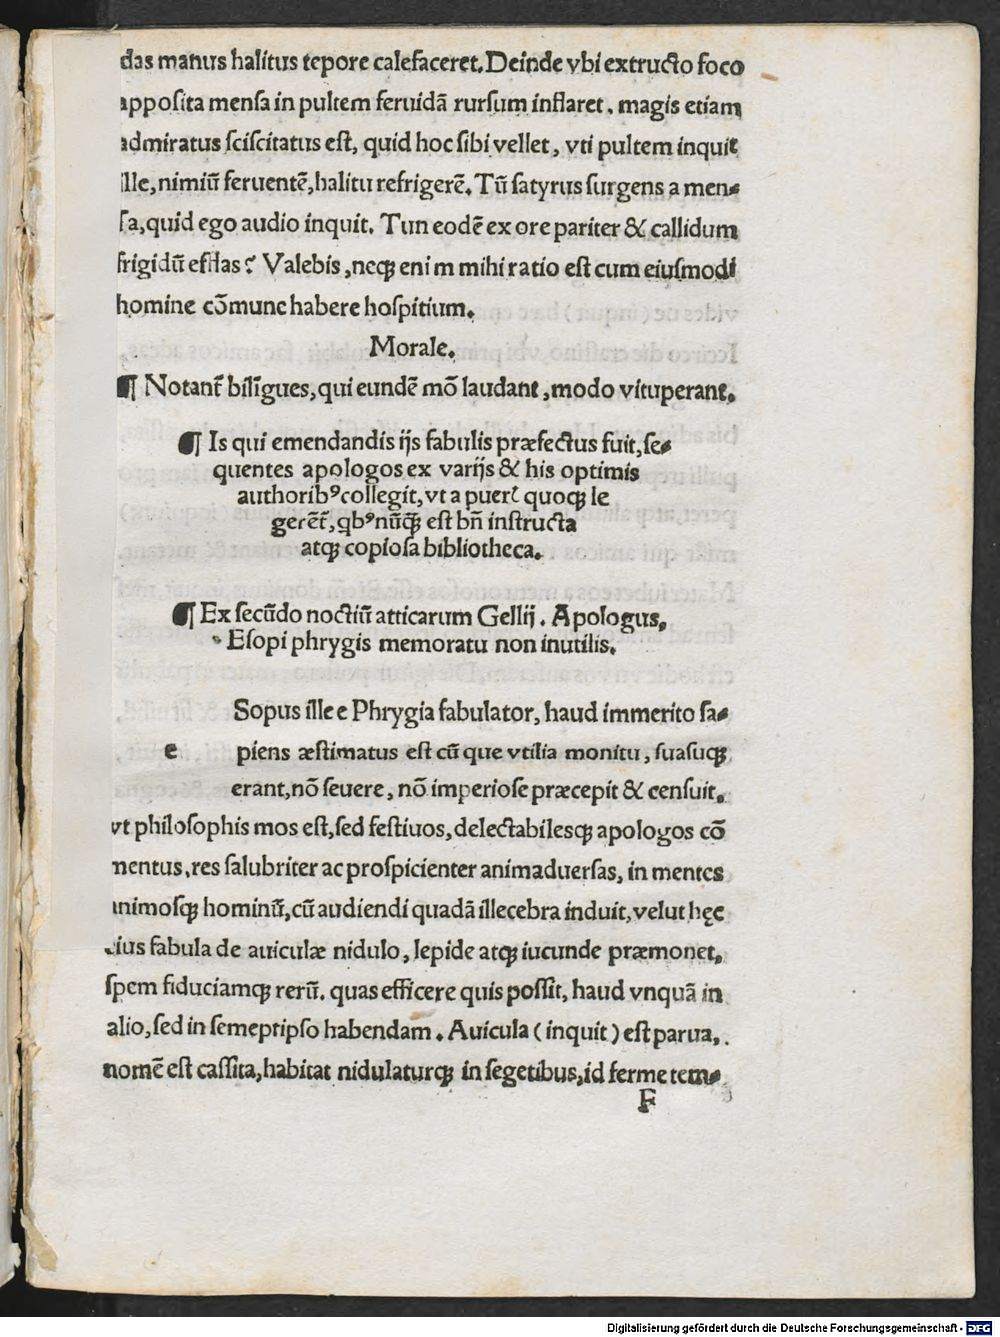 das manus halitus tepore calefaceret. Deinde vbi extructo foco
apposita mensa in pultem feruidã rursum inflaret, magis etiam
admiratus sciscitatus est, quid hoc sibi vellet, vti pultem inquit
ille, nimiũ feruentẽ, halitu refrigerẽ. Tũ satyrus surgens a men⸗
sa, quid ego audio inquit. Tun eodẽ ex ore pariter & callidum
frigidũ efflas? Valebis, neqꝫ eni m mihi ratio est cum eiusmodi
homine cõmune habere hospitium.
Morale.
¶ Notant᷑ bilĩgues, qui eundẽ mõ laudant, modo vituperant.
¶ Is qui emendandis ijs fabulis præfectus fuit, se⸗
quentes apologos ex varijs & his optimis
authoribꝰ collegit, vt a puer᷑ quoqꝫ le
gerẽt᷑, qbꝰ nũqꝫ est bñ instructa
atqꝫ copiosa bibliotheca.
¶ Ex secũdo noctiũ atticarum Gellij. Apologus,
Esopi phrygis memoratu non inutilis.
Sopus ille e Phrygia fabulator, haud immerito sa⸗
e piens æstimatus est cũ que vtilia monitu, suasuqꝫ
erant, nõ seuere, nõ imperiose præcepit & censuit,
vt philosophis mos est, sed festiuos, delectabilesqꝫ apologos cõ
mentus, res salubriter ac prospicienter animaduersas, in mentes
animosqꝫ hominũ, cũ audiendi quadã illecebra induit, velut hęc
eius fabula de auiculæ nidulo, lepide atqꝫ iucunde præmonet,
spem fiduciamqꝫ rerũ. quas efficere quis possit, haud vnquã in
alio, sed in semeptipso habendam. Auicula (inquit) est parua,
nomẽ est cassita, habitat nidulaturqꝫ in segetibus, id ferme tem⸗
F
Digitalisierung gefördert durch die Deutsche Forschungsgemeinschaft - DFG